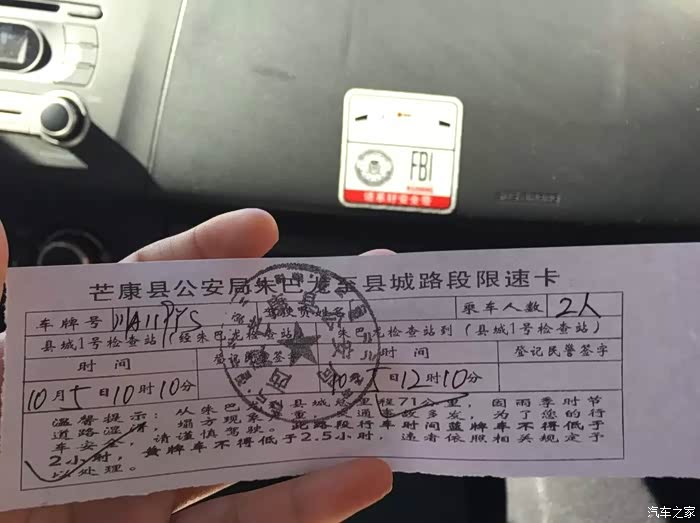 FBI
请系好安全带
芒康县公安局朱巴龙至县城路段限速卡
车牌号
乘车人数 2人
县城1号检查站(经朱巴龙检查站)
朱巴龙检查站到(县城1号检查站)
时间
登记民警签字
时间
登记民警签字
10月5日10时10分
10月5日12时10分
温馨提示:从朱巴龙到县城总里程71公里,因雨季时节
道路湿滑,塌方现象严重,交通事故多发,为了您的行
车安全,请谨慎驾驶。此路段行车时间蓝牌车不得低于
2小时,黄牌车不得低于2.5小时,违者依照相关规定予
以处理。
汽车之家